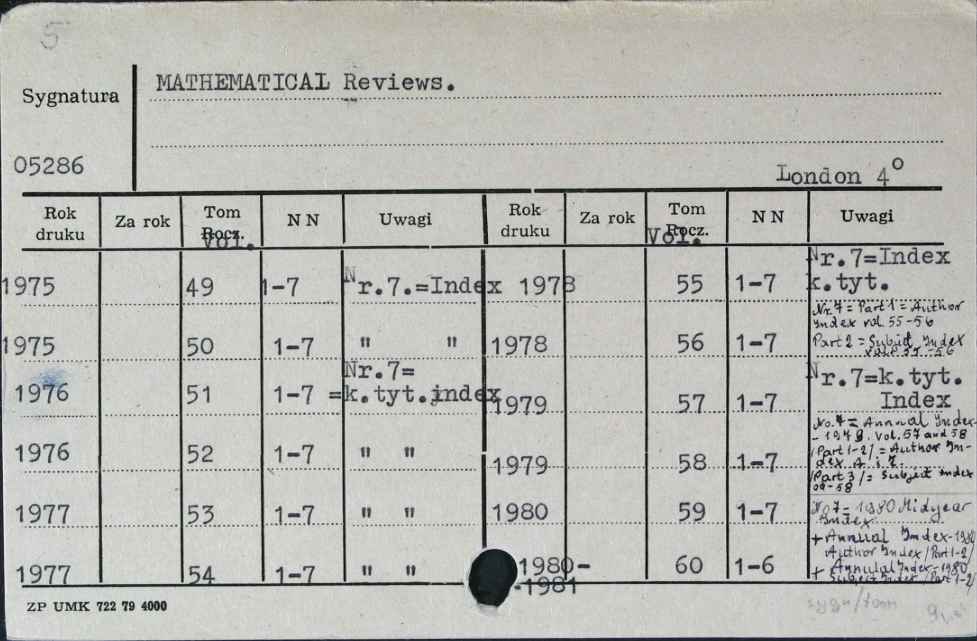 5
Sygnatura
MATHEMATICAL Reviews.
05286
London 4°
Rok druku Za rok Tom Rocz. Vol. N N Uwagi Rok druku Za rok Tom Rocz. Vol. N N Uwagi
1975 49 1-7 Nr.7.=Index
1975 50 1-7 " "
1976 51 1-7 = Nr.7= k.tyt.index
1976 52 1-7 " "
1977 53 1-7 " "
1977 54 1-7 " "
1978 55 1-7 Nr.7=Index k.tyt.
1978 56 1-7 Nr. 7 = Part 1 = Author
Index vol. 55-56
Part 2 = Subject Index
vol. 55-56
1979 57 1-7 Nr.7=k.tyt.
Index
1979 58 1-7 No. 7 = Annual Index-
Vol. 57 and 58
/Part 1-2/ = Author In-
dex
/Part 3/ = Subject index
1980 59 1-7 No 7 - 1980 Midyear
Index
1980-
-1981 60 1-6 + Annual Index-1980
Author Index /Part 1-2/
+ Annual Index-1980
Subject Index /Part 1-2/
ZP UMK 722 79 4000